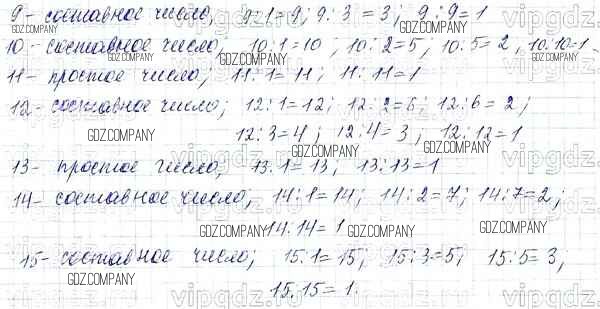 9 - составное число, 9:1=9; 9:3=3; 9:9=1
10 - составное число; 10:1=10; 10:2=5, 10:5=2, 10:10=1.
11 - простое число; 11:1=11; 11:11=1
12 - составное число; 12:1=12; 12:2=6; 12:6=2;
12:3=4; 12:4=3; 12:12=1
13 - простое число, 13:1=13; 13:13=1
14 - составное число, 14:1=14; 14:2=7; 14:7=2;
14:14=1
15 - составное число; 15:1=15; 15:3=5; 15:5=3;
15:15=1.
GDZ.COMPANY
vipgdz.com